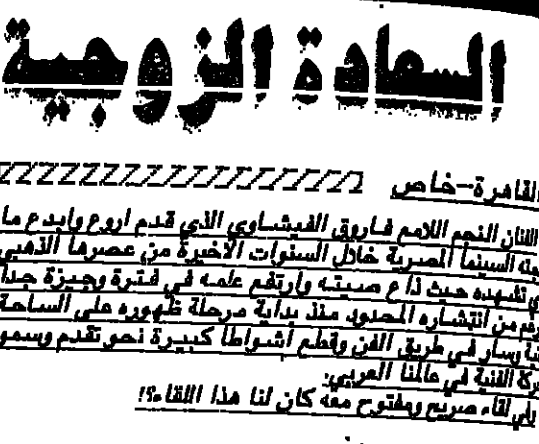 السعادة الزوجية
القاهرة-خاص
الفنان النجم اللامع فاروق الفيشاوي الذي قدم اروع وابدع ما
السينما المصرية خلال السنوات الاخيرة من عصرها الذهبي
تشهده حيث ذاع صيته وارتفع علمه في فترة وجيزة جدا
من انتشاره المحدود منذ بداية مرحلة ظهوره على الساحة
وسار في طريق الفن وقطع اشواطا كبيرة نحو تقدم وسمو
الفنية في عالمنا العربي.
لقاء صريح ومفتوح معه كان لنا هذا اللقاء؟!